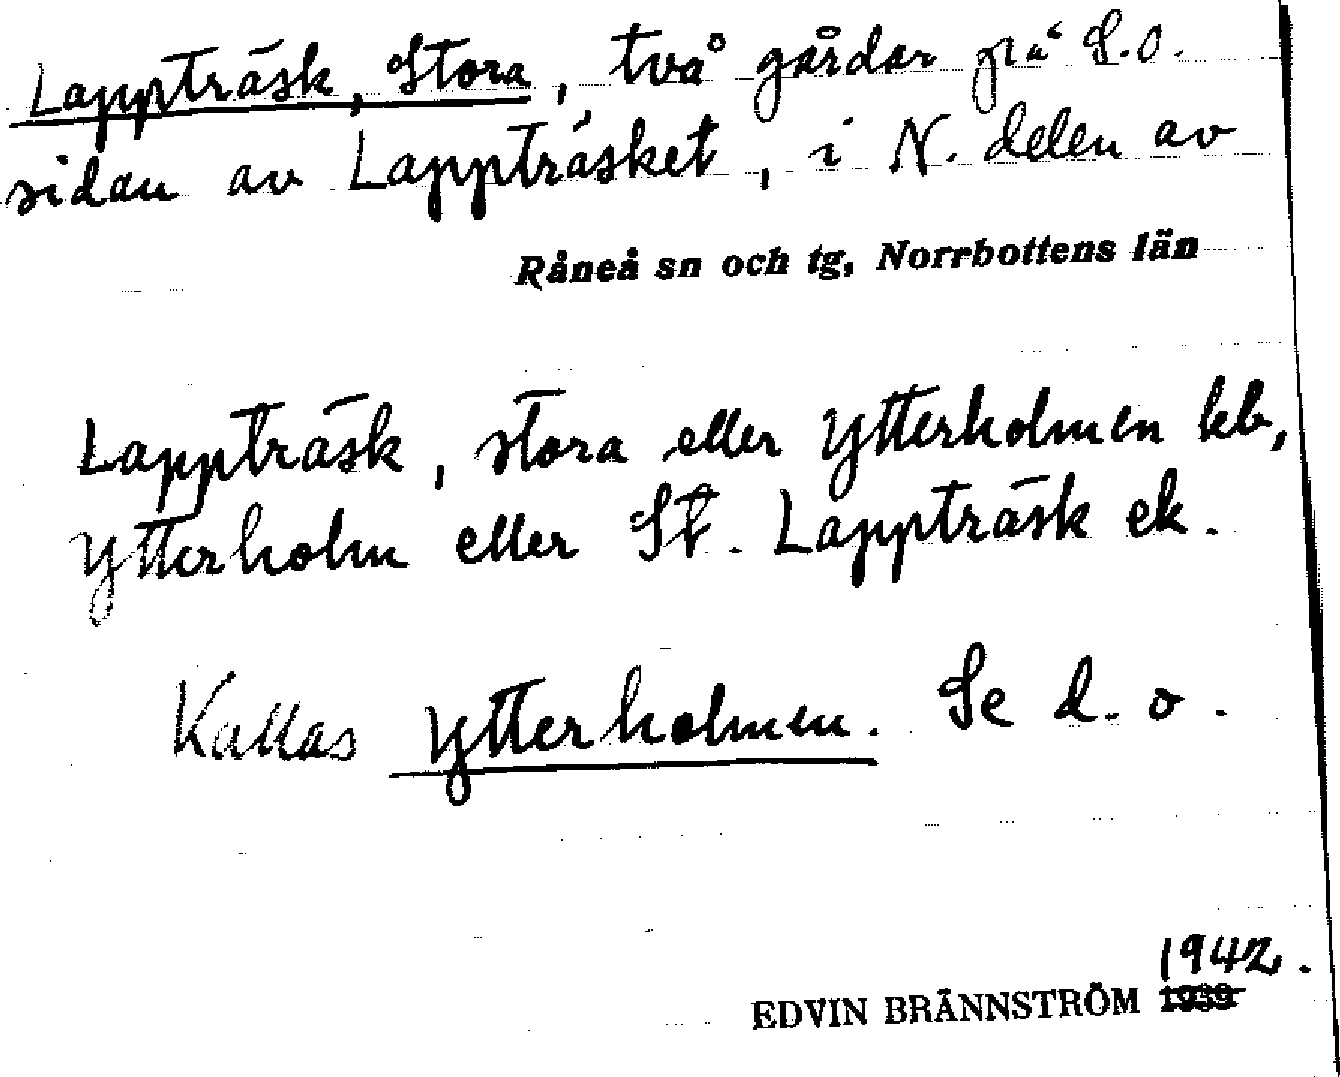 Lappträsk, Stora, två gårdar på S.O.
sidan av Lappträsket, i N. delen av
Råneå sn och tg, Norrbottens län
Lappträsk, stora eller Ytterholmen kb,
Ytterholm eller St. Lappträsk ek.
Kallas Ytterholmen. Se d. o.
1942.
EDVIN BRÄNNSTRÖM 1939